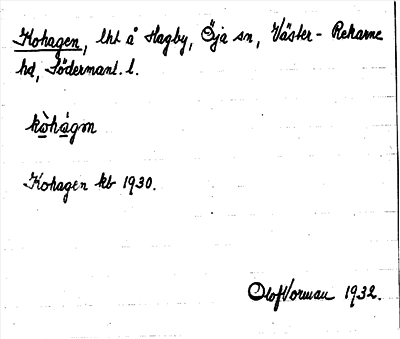 Kohagen, lht å Hagby, Öja sn, Väster-Rekarne
hd, Södermanl. l.
kòhágen
Kohagen kb 1930.
Olof Vorman 1932.